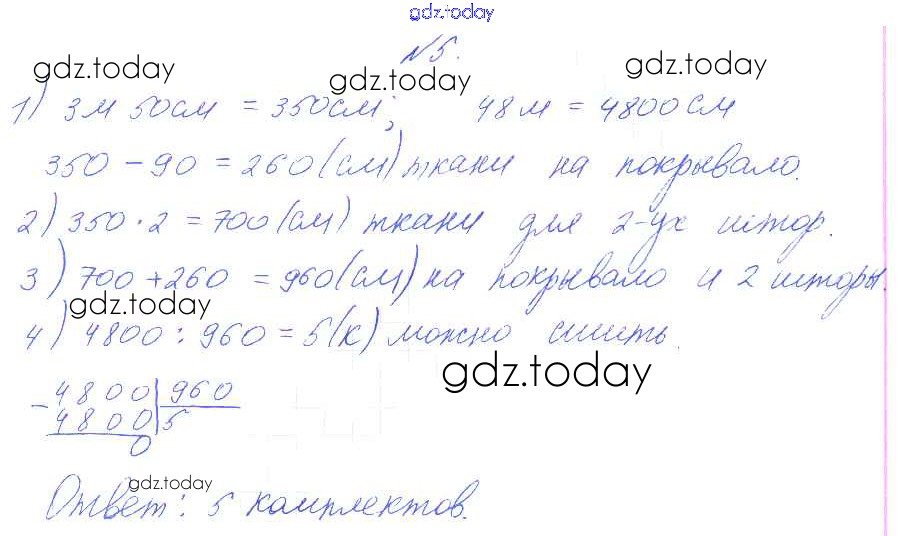 gdz.today
N5.
gdz.today gdz.today gdz.today
1) 3м 50см = 350см; 48м = 4800см
350 - 90 = 260(см) ткани на покрывало.
2) 350 · 2 = 700(см) ткани для 2-ух штор.
3) 700 + 260 = 960(см) на покрывало и 2 шторы.
gdz.today
4) 4800 : 960 = 5(к) можно сшить.
gdz.today
- 4800 | 960
4800 | 5
0
gdz.today
Ответ: 5 комплектов.